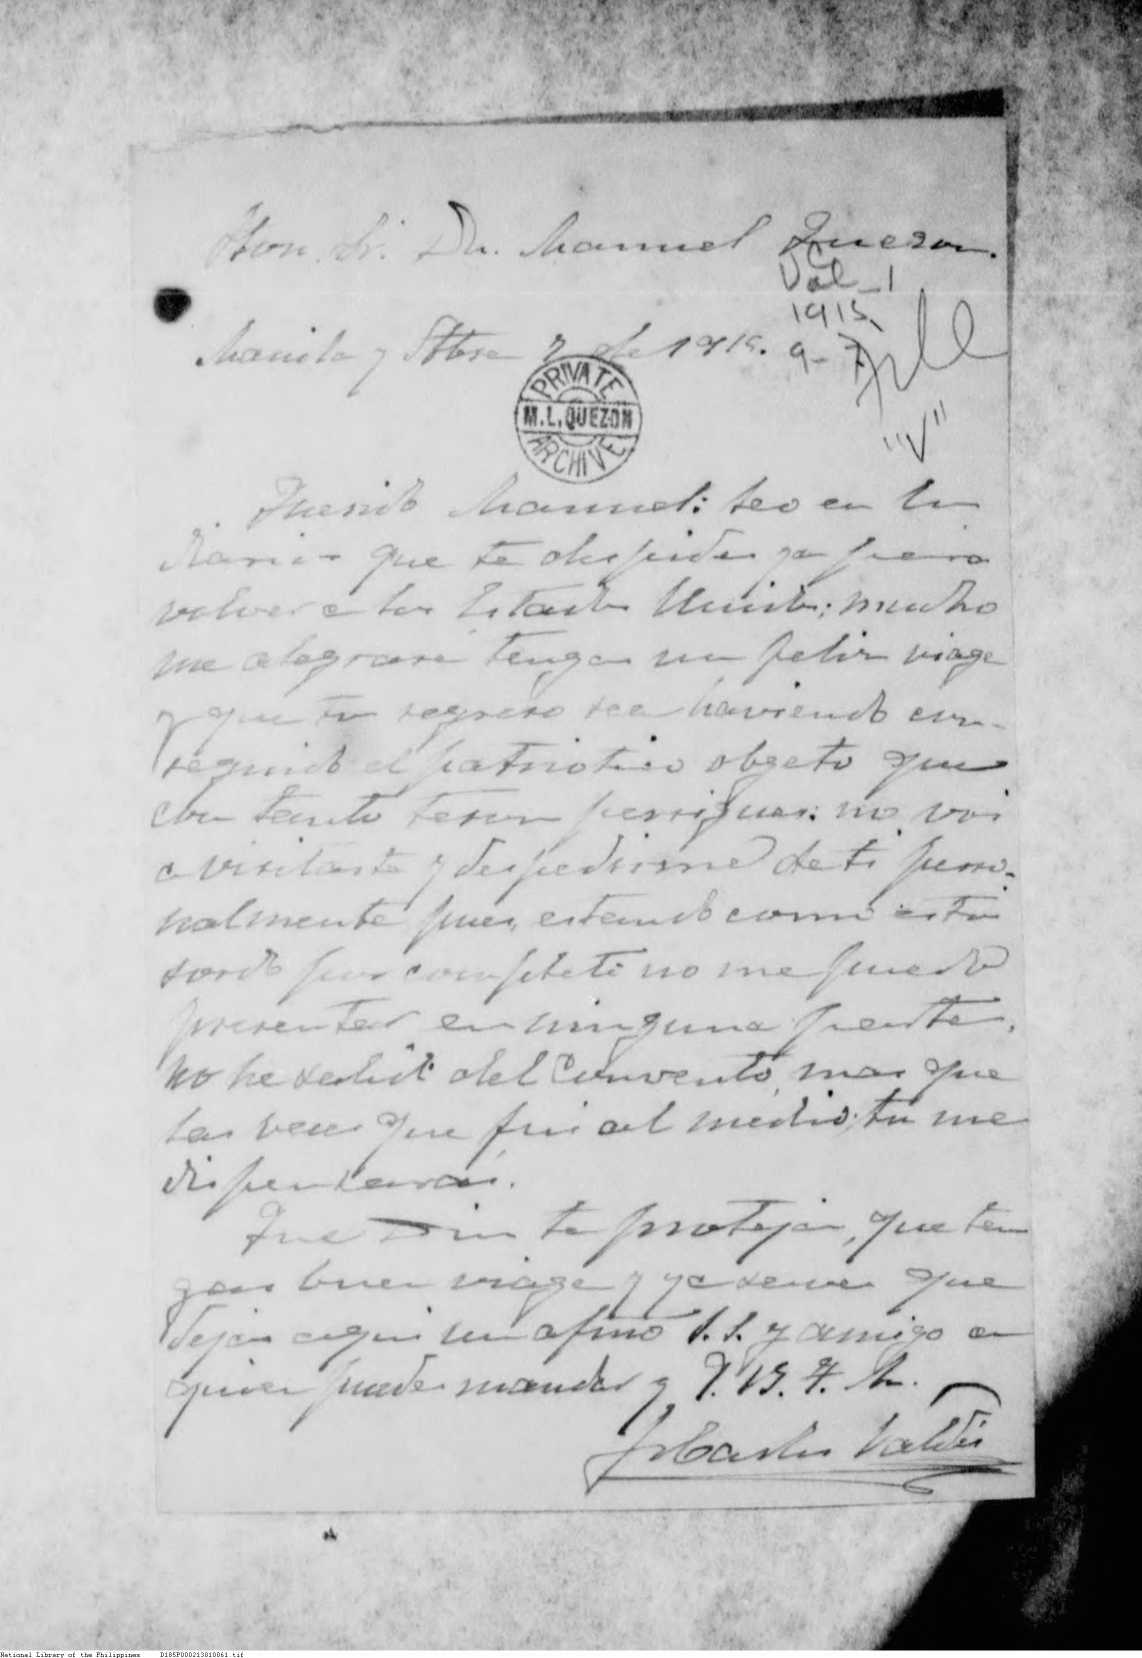 Hon. Sr. Dn. Manuel Quezon.
Val_1
1915
9-7
File
"V"
Manila y Stbre 7 de 1915.
PRIVATE
M.L.QUEZON
ARCHIVE
Querido Manuel: leo en los
diarios que te despides ya para
volver a los Estados Unidos; mucho
me alegraré tengas un feliz viage
y que tu regreso sea haviendo con-
seguido el patriotico obgeto que
con tanto teson persigues: no voi
a visitarte y despedirme de ti perso-
nalmente pues, estando como estoi
sordo por completo no me puedo
presentar en ninguna parte,
no he salido del Convento, mas que
las veces que fui al médico; tu me
dispensarás.
Que Dios te proteja, que ten
gas buen viage y ya saves que
dejas aqui un afmo S.S. y amigo a
quien puedes mandar y q.B.t.M.
Fr Carlos Valdés
National Library of the Philippines D185P000213810061.tif